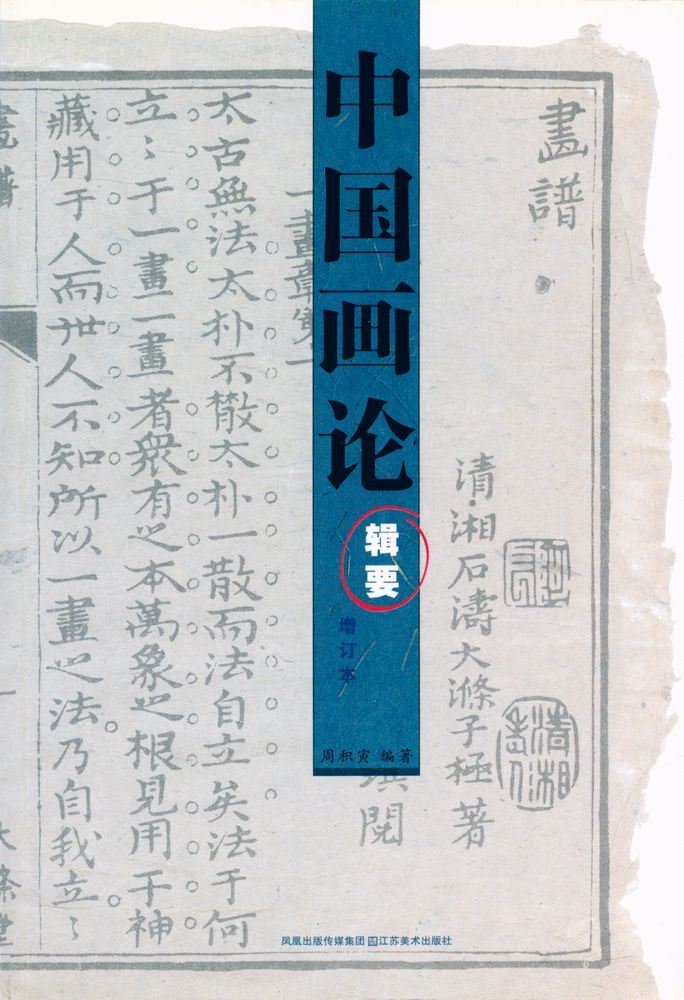 中国画论
辑要
增订本
周积寅 编著
畫譜
清·湘石濤大滌子極著
閱
一畫章第一
太古無法太朴不散太朴一散而法自立矣法于何
立〻于一畫一畫者衆有之本萬象之根見用于神
藏用于人而世人不知所以一畫之法乃自我立〻
畫譜
大滌堂
凤凰出版传媒集团 江苏美术出版社